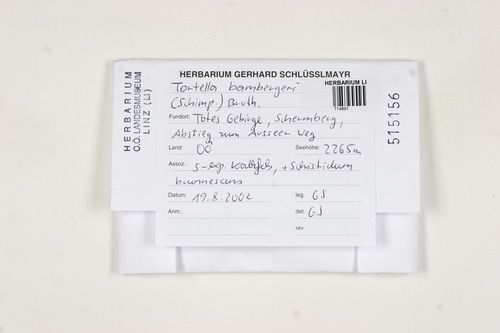 HERBARIUM
O.Ö. LANDESMUSEUM
LINZ (LI)
HERBARIUM GERHARD SCHLÜSSLMAYR
HERBARIUM LI
714691
Tortella bambergeri
(Schimp.) Broth.
Fundort: Totes Gebirge, Schermberg,
Abstieg zum Ausseer Weg
Land: OÖ Seehöhe: 2265m
Assoz.: S-exp. Kalkfels, + Schistidium
brunnescens
Datum: 19.8.2002 leg. GS
Anm.: det. GS
rev.
515156